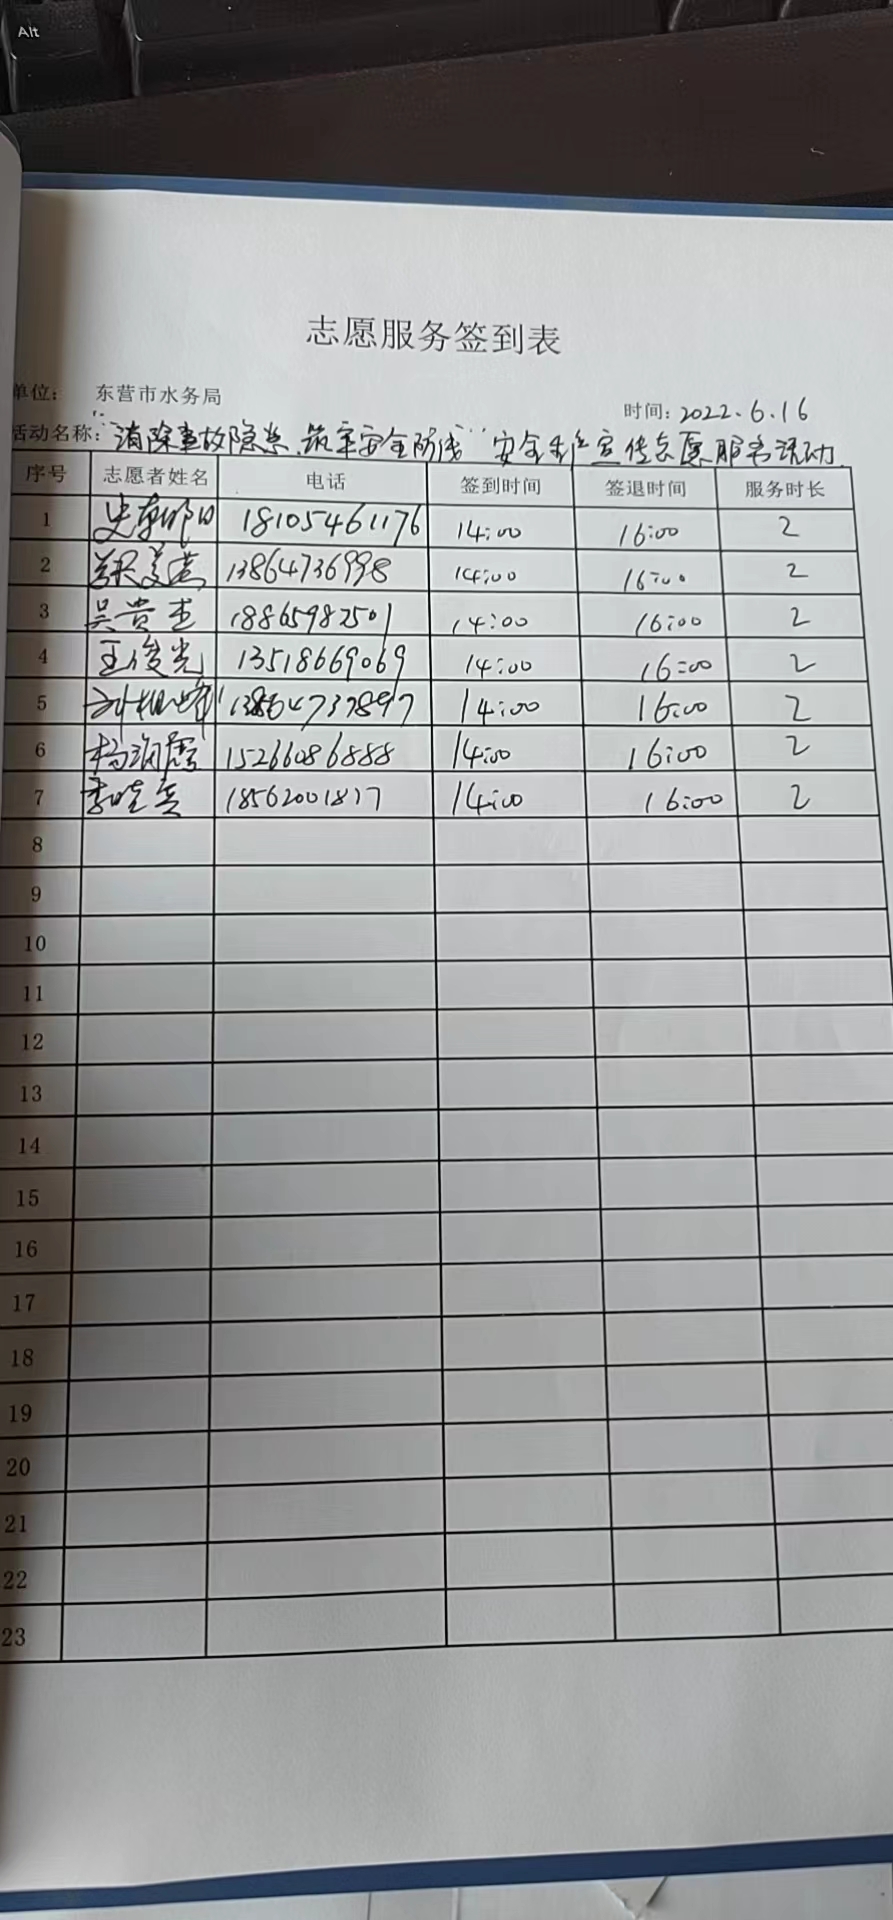 Alt
志愿服务签到表
单位： 东营市水务局
时间：2022.6.16
活动名称："消除事故隐患，筑牢安全防线"安全生产宣传志愿服务活动
序号 志愿者姓名 电话 签到时间 签退时间 服务时长
1 18105461176 14:00 16:00 2
2 13864736998 14:00 16:00 2
3 吴贵杰 18865982501 14:00 16:00 2
4 王俊光 13518669069 14:00 16:00 2
5 13864737897 14:00 16:00 2
6 15266086888 14:00 16:00 2
7 18562001817 14:00 16:00 2
8
9
10
11
12
13
14
15
16
17
18
19
20
21
22
23